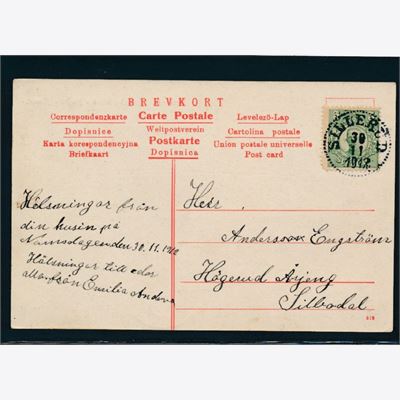 BREVKORT
Correspondenzkarte Carte Postale Levelező-Lap
Dopisnice Weltpostverein Cartolina postale
Karta korespondencyjna Postkarte Union postale universelle
Briefkaart Dopisnica Post card
SILLERUD
30
11
1912
Helsningar från
din kusin på
Namsdagen den 30.11.1912
Hälsningar till eder
från Emilia
Herr
Andersson Engström
Högerud Årjeng
Silbodal